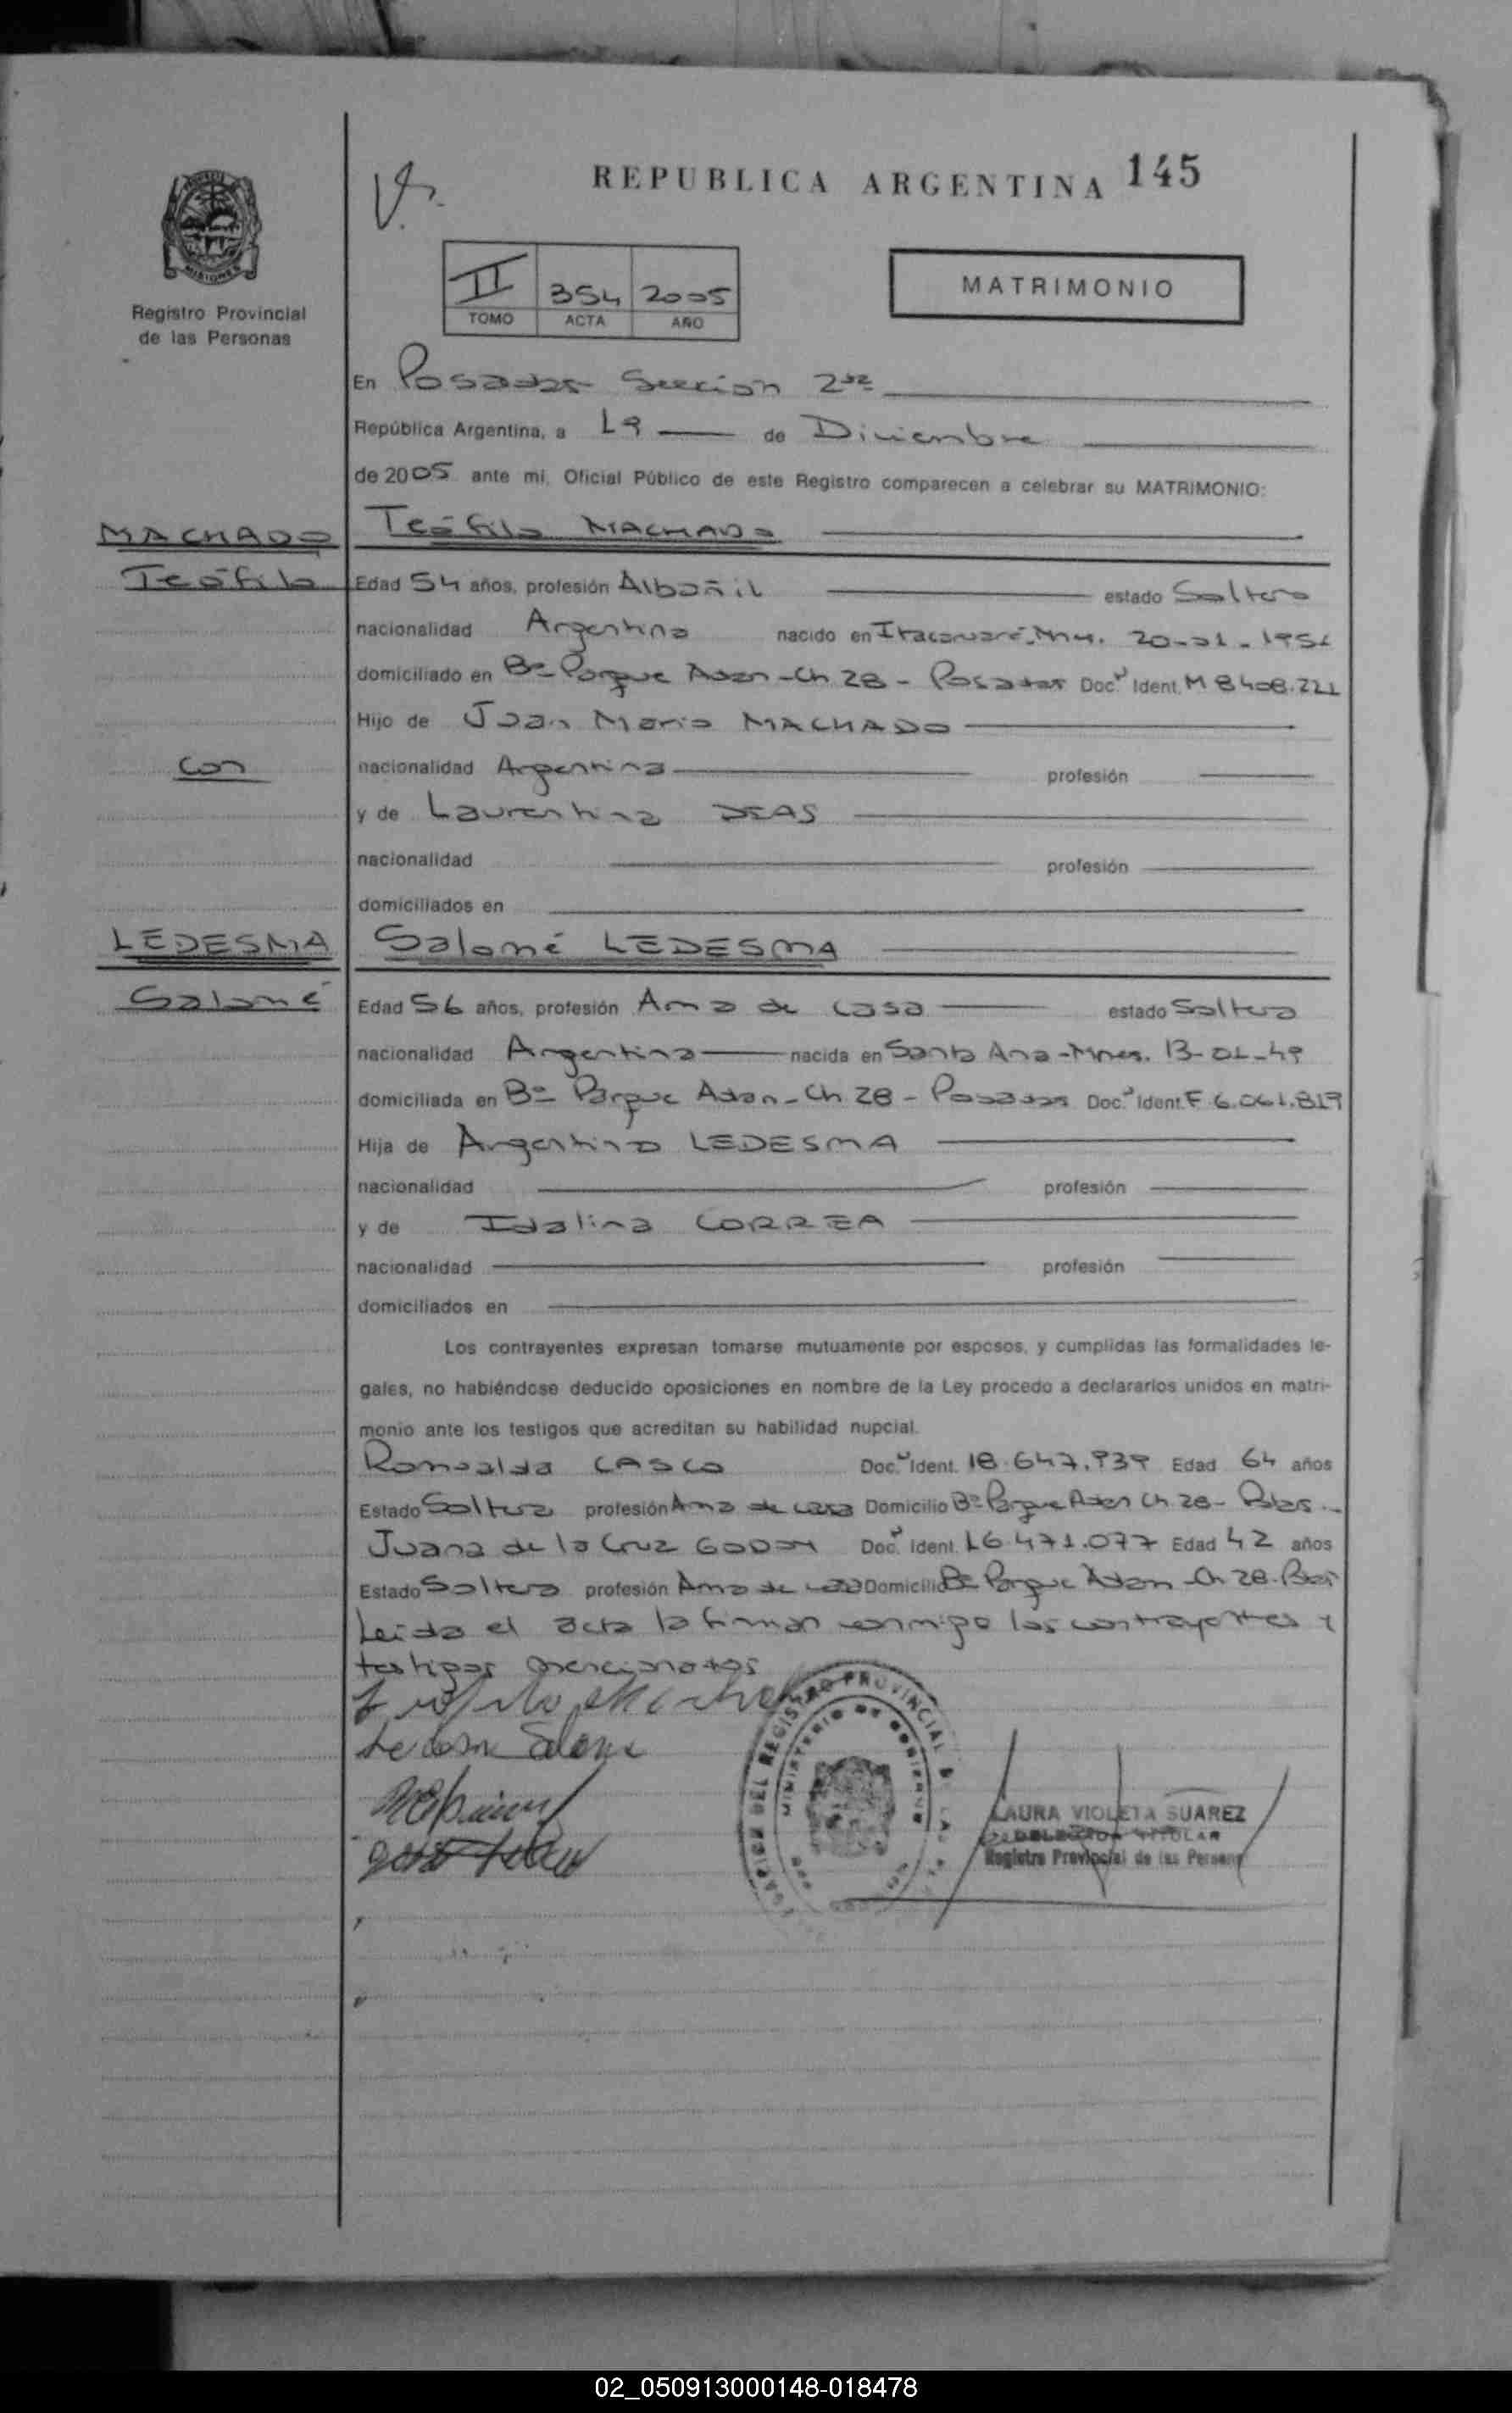 REPUBLICA ARGENTINA 145
MISIONES
Registro Provincial
de las Personas
II 354 2005
TOMO ACTA AÑO
MATRIMONIO
En Posadas Sección 2da
República Argentina, a 19 de Diciembre
de 2005 ante mi, Oficial Público de este Registro comparecen a celebrar su MATRIMONIO:
MACHADO Teófilo MACHADO
Teófilo Edad 54 años, profesión Albañil estado Soltero
nacionalidad Argentina nacido en Itacaruaré-Mnes. 20-01-1951
domiciliado en Bº Parque Adam-Ch 28 - Posadas Doc. Ident. M 8408.221
Hijo de Juan Mario MACHADO
con nacionalidad Argentina profesión
y de Laurentina DEAS
nacionalidad profesión
domiciliados en
LEDESMA Salomé LEDESMA
Salomé Edad 56 años, profesión Ama de casa estado Soltera
nacionalidad Argentina nacida en Santa Ana-Mnes. 13-01-49
domiciliada en Bº Parque Adam-Ch 28 - Posadas Doc. Ident. F 6.061.819
Hija de Argentino LEDESMA
nacionalidad profesión
y de Idalina CORREA
nacionalidad profesión
domiciliados en
Los contrayentes expresan tomarse mutuamente por esposos, y cumplidas las formalidades le-
gales, no habiéndose deducido oposiciones en nombre de la Ley procedo a declararlos unidos en matri-
monio ante los testigos que acreditan su habilidad nupcial.
Romualda CASCO Doc. Ident. 18.647.939 Edad 64 años
Estado Soltera profesión Ama de casa Domicilio Bº Parque Adam Ch 28-
Juana de la Cruz GODOY Doc. Ident. 16.471.077 Edad 42 años
Estado Soltera profesión Ama de casa Domicilio Bº Parque Adam-Ch 28.
Leida el acta la firman conmigo los contrayentes y
testigos mencionados
Ledesma Salome
REGISTRO PROVINCIAL DE LAS
MINISTERIO DE GOBIERNO
LAURA VIOLETA SUAREZ
DELEGADA TITULAR
Registro Provincial de las Personas
02_050913000148-018478